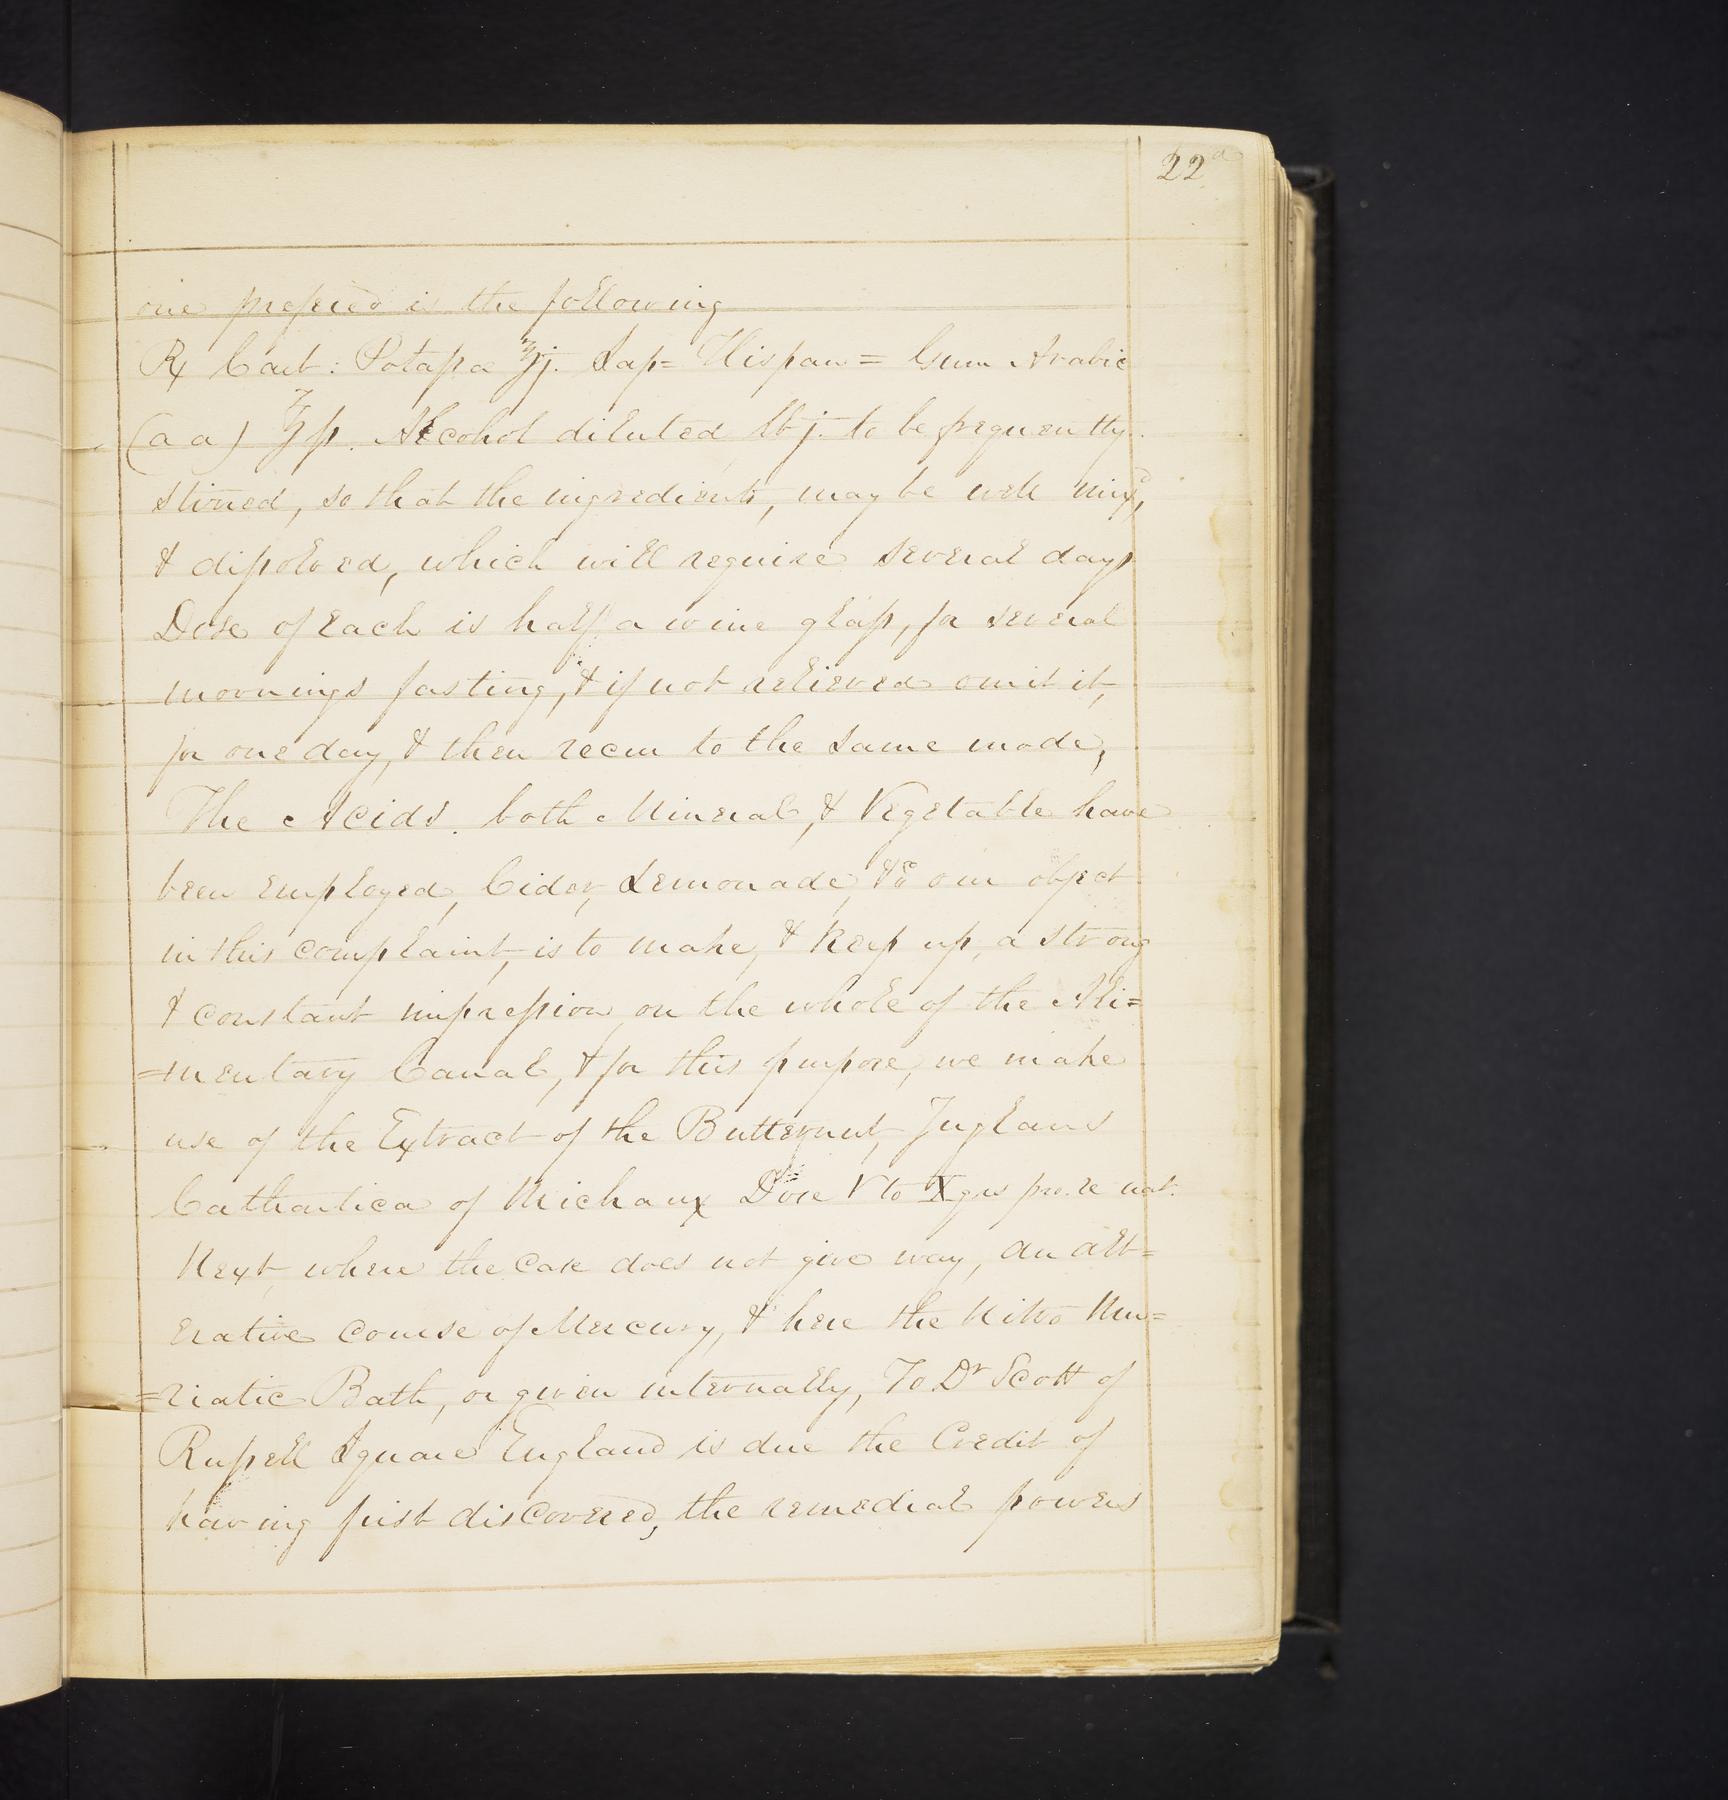 22a
one prefered is the following
℞ Carb: Potassa ℥j. Sap= Hispan= Gum Arabic
(aa) ℥ss. Alcohol diluted lbj. to be frequently
stirred, so that the ingredients, may be well mixd,
& dissolved, which will require several days
Dose of each is half a wine glass, for several
mornings fasting, & if not relieved omit it,
for one day, & then recur to the same mode,
The Acids. both Mineral, & Vegetable have
been employed, Cider, Lemonade, &c our object
in this complaint, is to make, & keep up, a strong
& constant impression on the whole of the Ali=
=mentary Canal, & for this purpose, we make
use of the Extract of the Butternut, Juglans
Cathartica of Michaux Dose V to X grs pro. re nat.
Next, where the case does not give way, an alt=
erative course of Mercury, & here the Nitro Mu=
=riatic Bath, or given internally, To Dr Scott of
Russell Square England is due the Credit of
having first discovered, the remedial powers